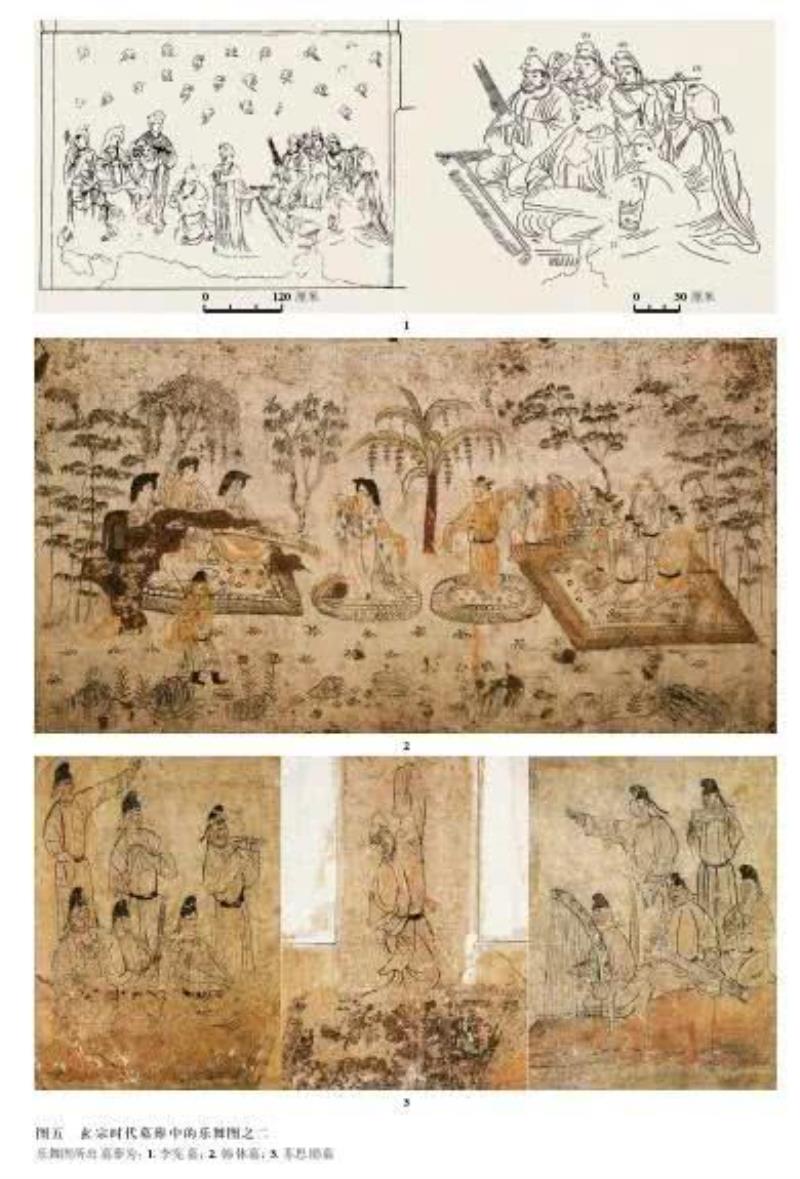 0 120 厘米
0 30 厘米
1
2
3
图五 玄宗时代墓葬中的乐舞图之二
乐舞图所出墓葬为：1. 李宪墓；2. 韩休墓；3. 苏思勖墓